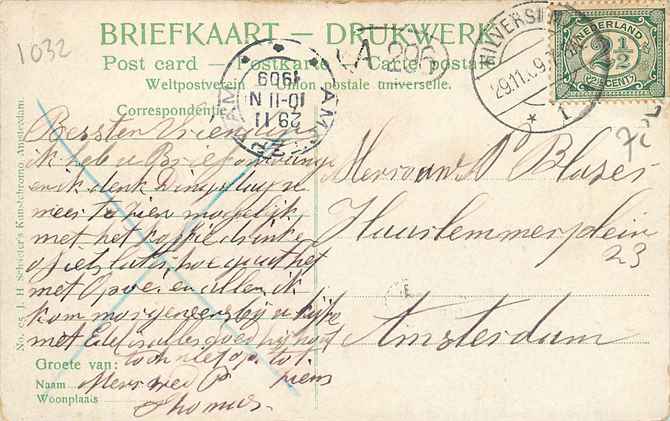 1032
BRIEFKAART — DRUKWERK
Post card — Postkarte — Carte postale
Weltpostverein Union postale universelle.
Correspondentie
A 206
AMSTERDAM
29 11
10-11 N
1909
HILVERSUM
29.11.09
1
NEDERLAND
2½
CENT
No. 95 J. H. Schaefer's Kunstchromo Amsterdam.
Besten Vriendin
ik heb u Brief ontvangen
en ik denk Dingsdag u
weer te zien mogelijk
met het koffie drinken
of iets later, hoe gaat het
met Opoe en allen ik
kom morgen eens bij u
met alles goed
toch niet op. tot
ziens
Groete van:
Naam
Woonplaats
Thomas.
Mevrouw Blazer
Haarlemmerplein
23
Amsterdam